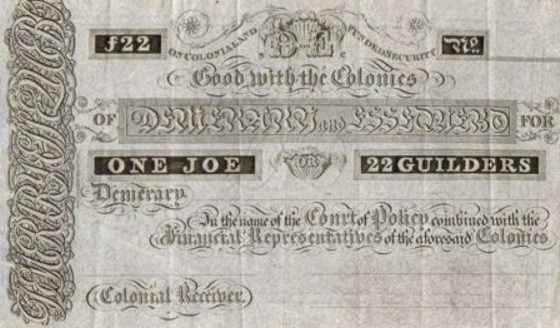 ƒ22 ON COLONIAL AND D E FUNDED SECURITY No
Good with the Colonies
OF DEMERARY and ESSEQUEBO FOR
ONE JOE OR 22 GUILDERS
Demerary
In the name of the Court of Policy combined with the
Financial Representatives of the aforesaid Colonies
Colonial Receiver